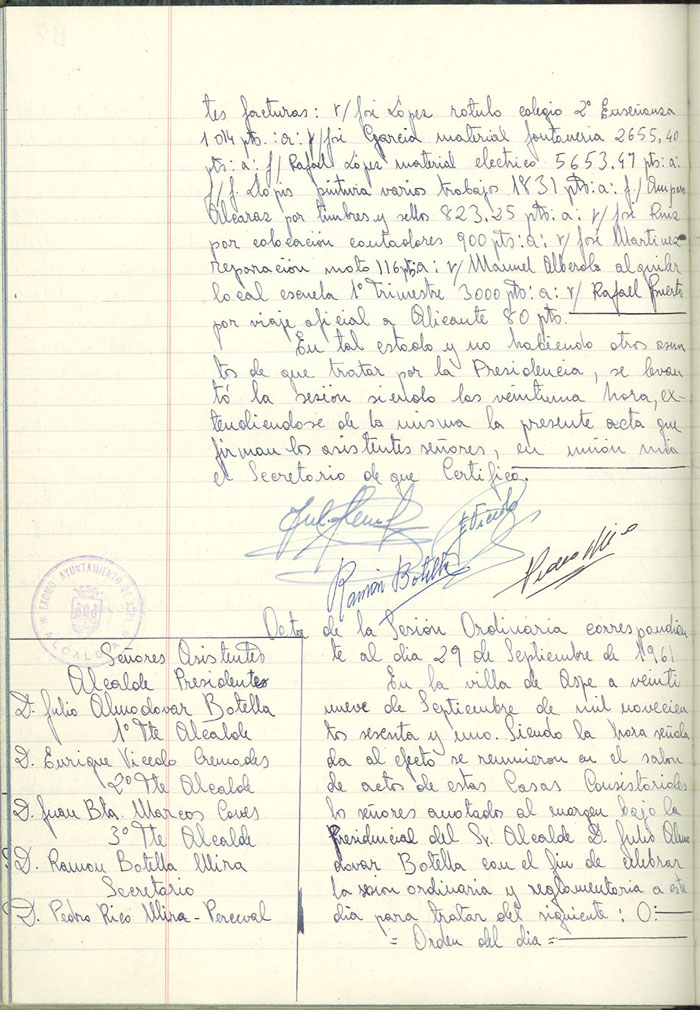 tes facturas: r/ José López rotulo colegio 2ª Enseñanza
1.014 pts.: a: r/ José Garcia material fontaneria 2655,40
pts: a: f/ Rafael López material electrico 5653.47 pts: a:
f/ J. Llopis pintura varios trabajos 1831 pts: a: f/ Amparo
Alcaraz por timbres y sellos 823.25 pts: a: r/ José Ruiz
por colocación contadores 900 pts: a: r/ José Martinez
reparación moto 116 pts: a: r/ Manuel Alberola alquiler
local escuela 1º trimestre 3000 pts: a: r/ Rafael Puerto
por viaje oficial a Alicante 80 pts.
En tal estado y no habiendo otros asun
tos de que tratar por la Presidencia, se levan
tó la sesión siendo las veintiuna hora, ex-
tendiendose de la misma la presente acta que
firman los asistentes señores, en unión mia
el Secretario de que Certifico.
E Vicedo
Ramón Botella
Pedro Rico
EXCMO. AYUNTAMIENTO DE ASPE
ALCALDIA
Acta de la Sesión Ordinaria correspondien
te al dia 29 de Septiembre de 1961
Señores Asistentes
Alcalde Presidente
D. Julio Almodovar Botella
1º Tte Alcalde
D. Enrique Vicedo Cremades
2º Tte Alcalde
D. Juan Bta. Marcos Coves
3º Tte Alcalde
D. Ramon Botella Mira
Secretario
D. Pedro Rico Mira-Perceval
En la villa de Aspe a veinti
nueve de Septiembre de mil novecien
tos sesenta y uno. Siendo la hora señala
da al efecto se reunieron en el salon
de actos de estas Casas Consistoriales
los señores anotados al margen bajo la
Presidencial del Sr. Alcalde D. Julio Almo
dovar Botella con el fin de celebrar
la sesion ordinaria y reglamentaria a este
dia para tratar del siguiente: O:
= Orden del dia =